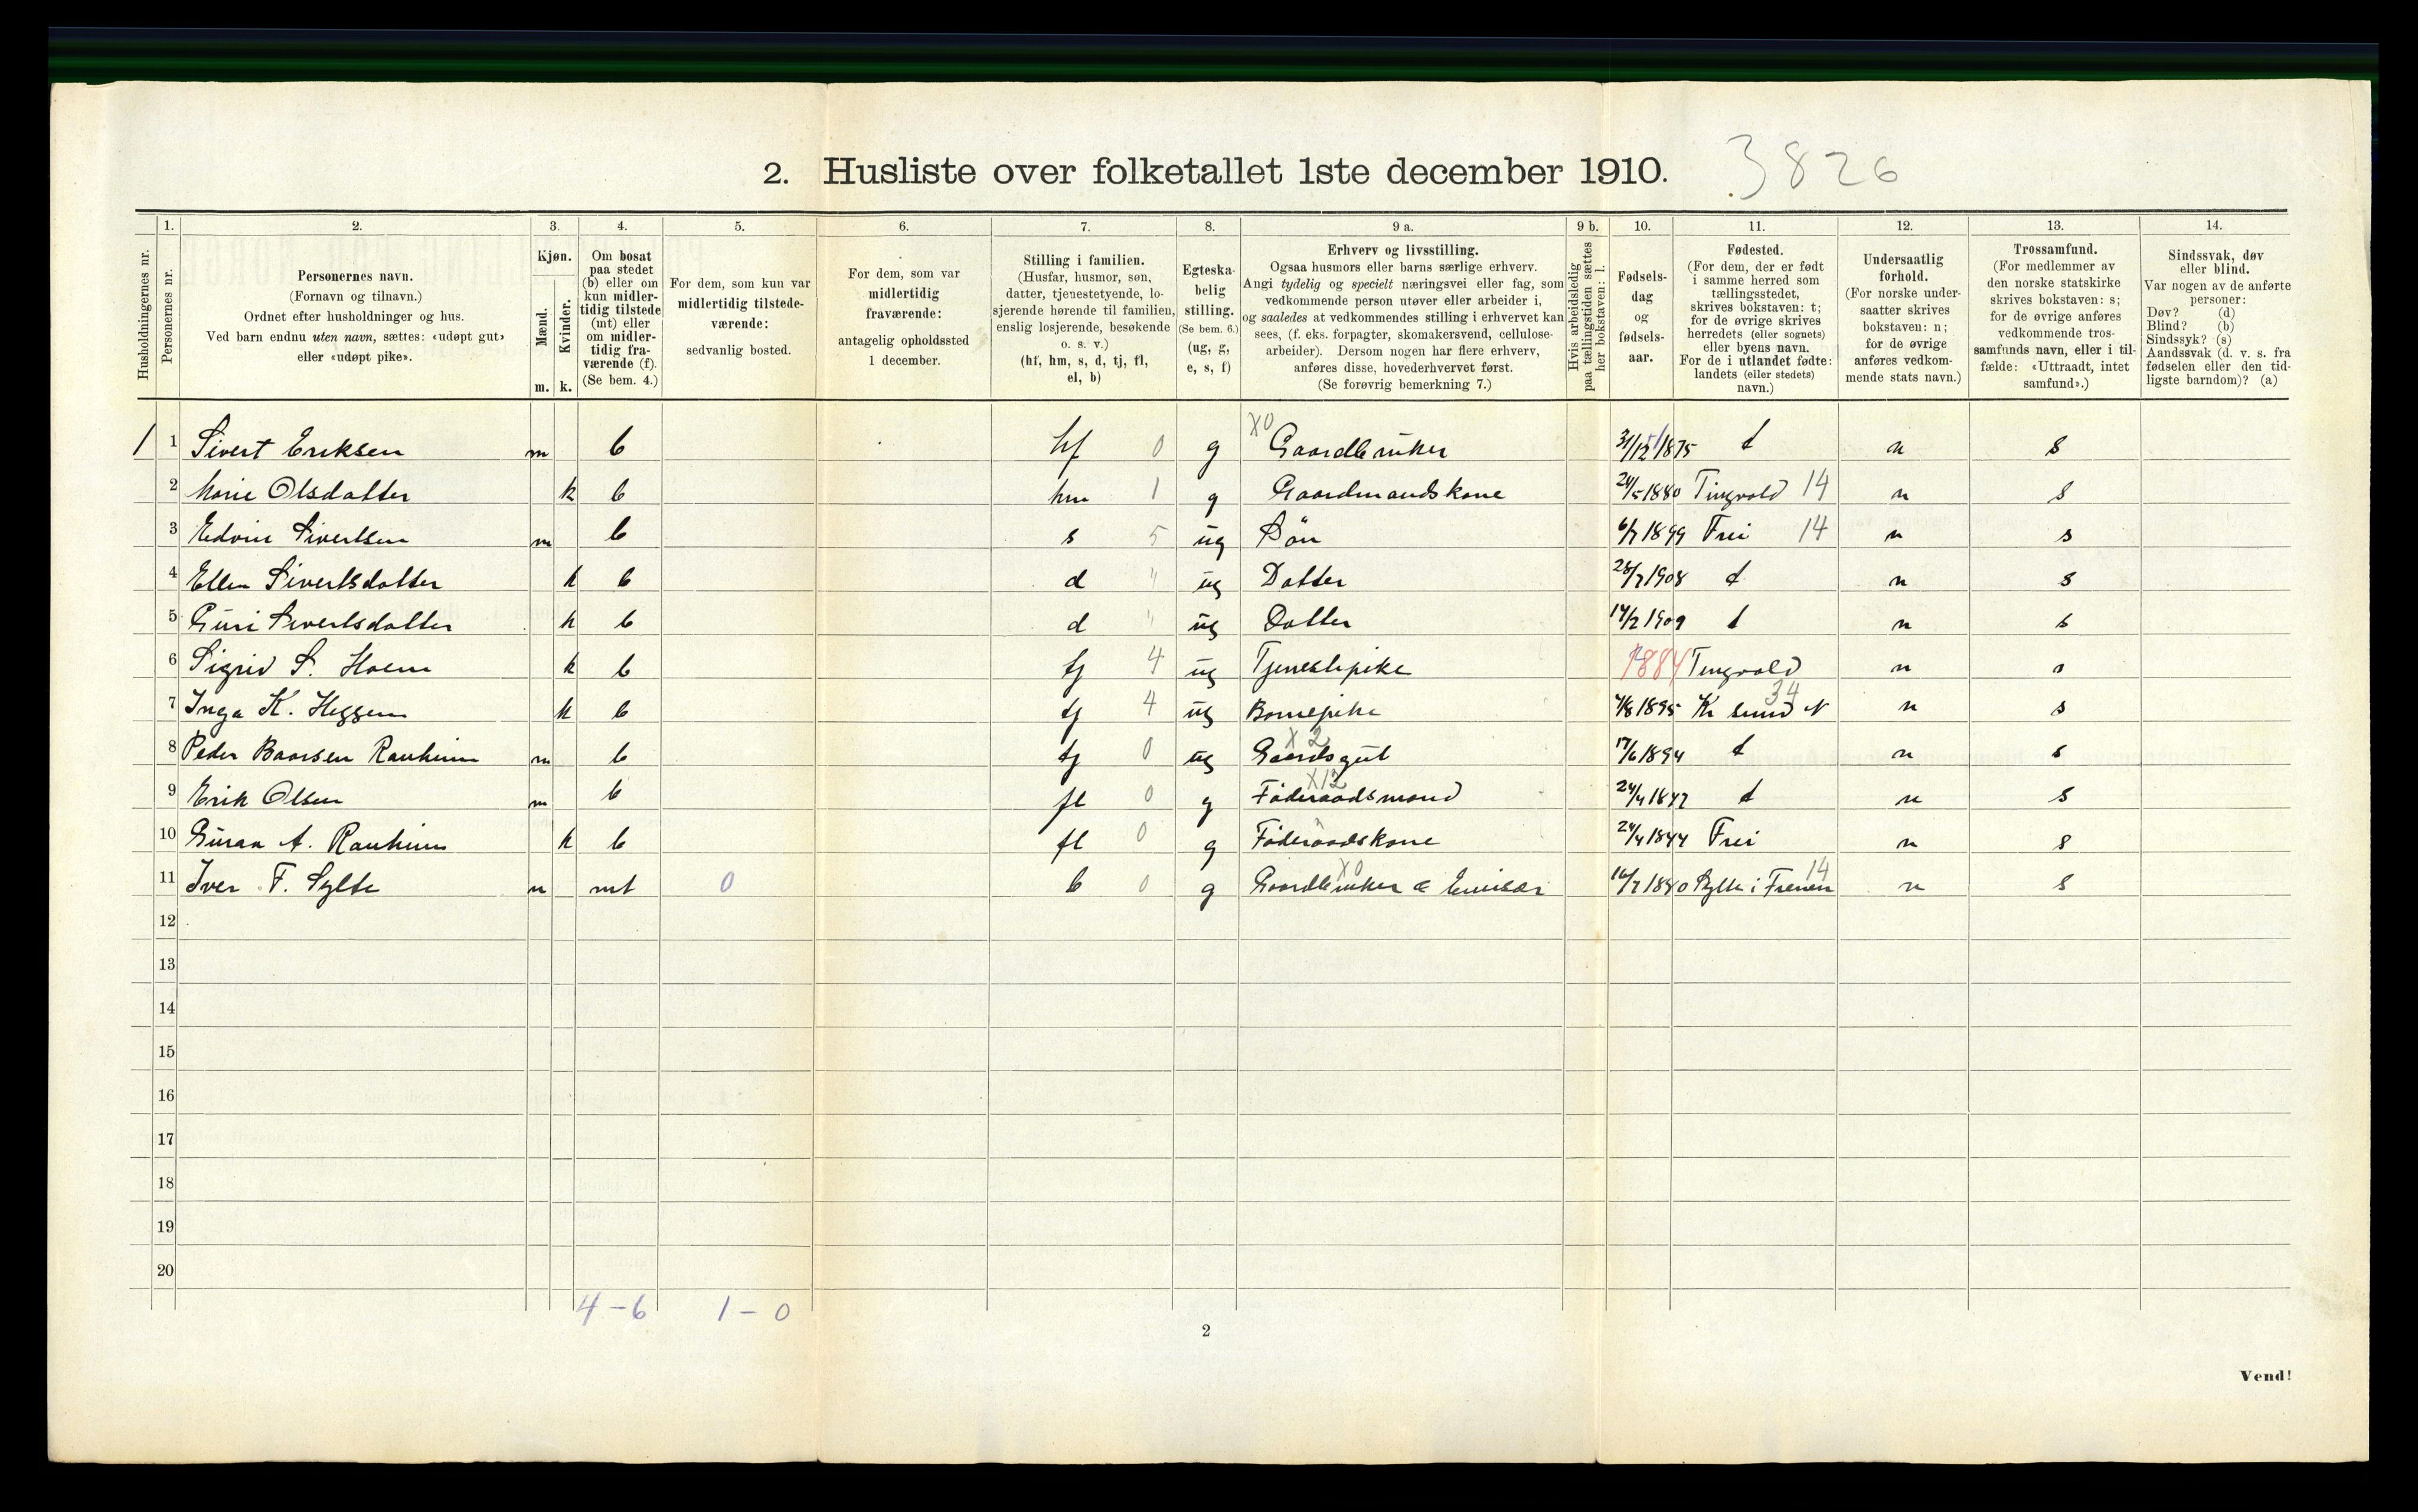 2. Husliste over folketallet 1ste december 1910. 3826
1. 2. 3. 4. 5. 6. 7. 8. 9 a. 9 b. 10. 11. 12. 13. 14.
Husholdningernes nr.
Personernes nr.
Personernes navn.
(Fornavn og tilnavn.)
Ordnet efter husholdninger og hus.
Ved barn endnu uten navn, sættes: «udøpt gut»
eller «udøpt pike».
Kjøn.
Mænd.
Kvinder.
m. k.
Om bosat
paa stedet
(b) eller om
kun midler-
tidig tilstede
(mt) eller
om midler-
tidig fra-
værende (f).
(Se bem. 4.)
For dem, som kun var
midlertidig tilstede-
værende:
sedvanlig bosted.
For dem, som var
midlertidig
fraværende:
antagelig opholdssted
1 december.
Stilling i familien.
(Husfar, husmor, søn,
datter, tjenestetyende, lo-
sjerende hørende til familien,
enslig losjerende, besøkende
o. s. v.)
(hf, hm, s, d, tj, fl,
el, b)
Egteska-
belig
stilling.
(Se bem. 6.)
(ug, g,
e, s, f)
Erhverv og livsstilling.
Ogsaa husmors eller barns særlige erhverv.
Angi tydelig og specielt næringsvei eller fag, som
vedkommende person utøver eller arbeider i,
og saaledes at vedkommendes stilling i erhvervet kan
sees, (f. eks. forpagter, skomakersvend, cellulose-
arbeider). Dersom nogen har flere erhverv,
anføres disse, hovederhvervet først.
(Se forøvrig bemerkning 7.)
Hvis arbeidsledig
paa tællingstiden sættes
her bokstaven: l.
Fødsels-
dag
og
fødsels-
aar.
Fødested.
(For dem, der er født
i samme herred som
tællingsstedet,
skrives bokstaven: t;
for de øvrige skrives
herredets (eller sognets)
eller byens navn.
For de i utlandet fødte:
landets (eller stedets)
navn.)
Undersaatlig
forhold.
(For norske under-
saatter skrives
bokstaven: n;
for de øvrige
anføres vedkom-
mende stats navn.)
Trossamfund.
(For medlemmer av
den norske statskirke
skrives bokstaven: s;
for de øvrige anføres
vedkommende tros-
samfunds navn, eller i til-
fælde: «Uttraadt, intet
samfund».)
Sindssvak, døv
eller blind.
Var nogen av de anførte
personer:
Døv? (d)
Blind? (b)
Sindssyk? (s)
Aandssvak (d. v. s. fra
fødselen eller den tid-
ligste barndom)? (a)
1 1 Sivert Eriksen m b hf 0 g X0 Gaardbruker 31/12 1875 t n s
2 Marie Olsdatter k b hm 1 g Gaardmandskone 24/5 1880 Tingvold 14 n s
3 Edvin Sivertsen m b s 5 ug Sön 6/7 1899 Frei 14 n s
4 Ellen Sivertsdatter k b d " ug Datter 28/7 1908 t n s
5 Guri Sivertsdatter k b d " ug Datter 14/2 1909 t n s
6 Sigrid S. Hoem k b tj 4 ug Tjenestepike 1884 Tingvold n s
7 Inga K. Heggem k b tj 4 ug Barnepike 4/8 1895 Kr sund N 34 n s
8 Peder Baarsen Rauheim m b tj 0 ug X 2 Gaardsgut 17/6 1894 t n s
9 Erik Olsen m b fl 0 g X12 Föderaadsmand 24/4 1842 t n s
10 Guran A. Rauheim k b fl 0 g Föderaadskone 24/4 1844 Frei n s
11 Iver F. Sylte m mt 0 b 0 g X0 Gaardbruker & Emisær 16/7 1880 Sylte i Frenen 14 n s
12
13
14
15
16
17
18
19
20
4 - 6 1 - 0
2
Vend!